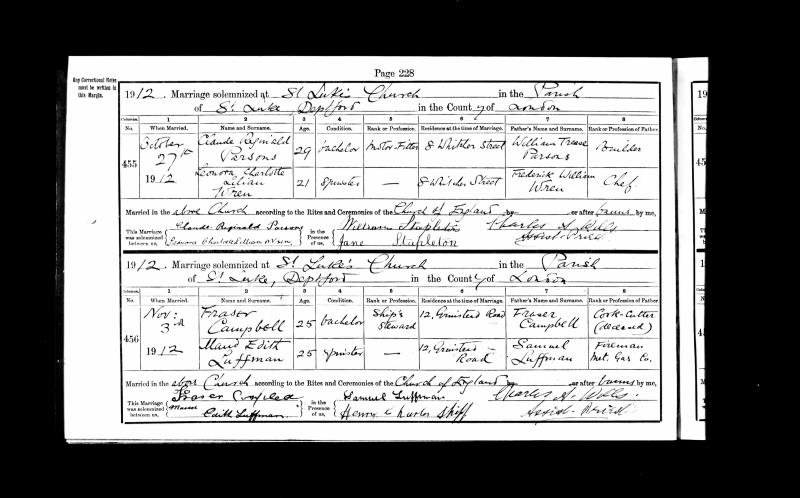 Page 228
Any Correctional Notes
must be written in
this Margin.
1912. Marriage solemnized at St Luke's Church in the Parish
of St. Luke, Deptford in the County of London
Columns. 1 2 3 4 5 6 7 8
No. When Married. Name and Surname. Age. Condition. Rank or Profession. Residence at the time of Marriage. Father's Name and Surname. Rank or Profession of Father.
455 October 27th 1912
Claude Reginald Parsons 29 bachelor Motor Fitter 8 Whitcher Street William Parsons Builder
Leonora Charlotte Lilian Wren 21 Spinster — 8 Whitcher Street Frederick William Wren Chef
Married in the above Church according to the Rites and Ceremonies of the Church of England by or after banns by me,
This Marriage was solemnized between us, Claude Reginald Parsons
Leonora Charlotte Lilian Wren
in the Presence of us, William Stapleton
Jane Stapleton
Charles A. Wills
Assist. Priest
1912. Marriage solemnized at St Luke's Church in the Parish
of St. Luke, Deptford in the County of London
Columns. 1 2 3 4 5 6 7 8
No. When Married. Name and Surname. Age. Condition. Rank or Profession. Residence at the time of Marriage. Father's Name and Surname. Rank or Profession of Father.
456 Nov: 3rd 1912
Fraser Campbell 25 bachelor Ship's Steward 12, Grinstead Road Fraser Campbell Cork-Cutter (deceased)
Maud Edith Luffman 25 spinster — 12, Grinstead Road Samuel Luffman Fireman Met. Gas Co.
Married in the above Church according to the Rites and Ceremonies of the Church of England by or after banns by me,
This Marriage was solemnized between us, Fraser
Edith Luffman
in the Presence of us, Samuel Luffman
Henry Charles Skiff
Charles A. Wills.
Assist. Priest
19
of
Columns.
No.
19
of
Columns.
No.